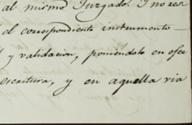 al mismo Juzgado. I no ser
el correspondiente instrumento
y validacion, poniendolo en ofi
escritura, y en aquella via